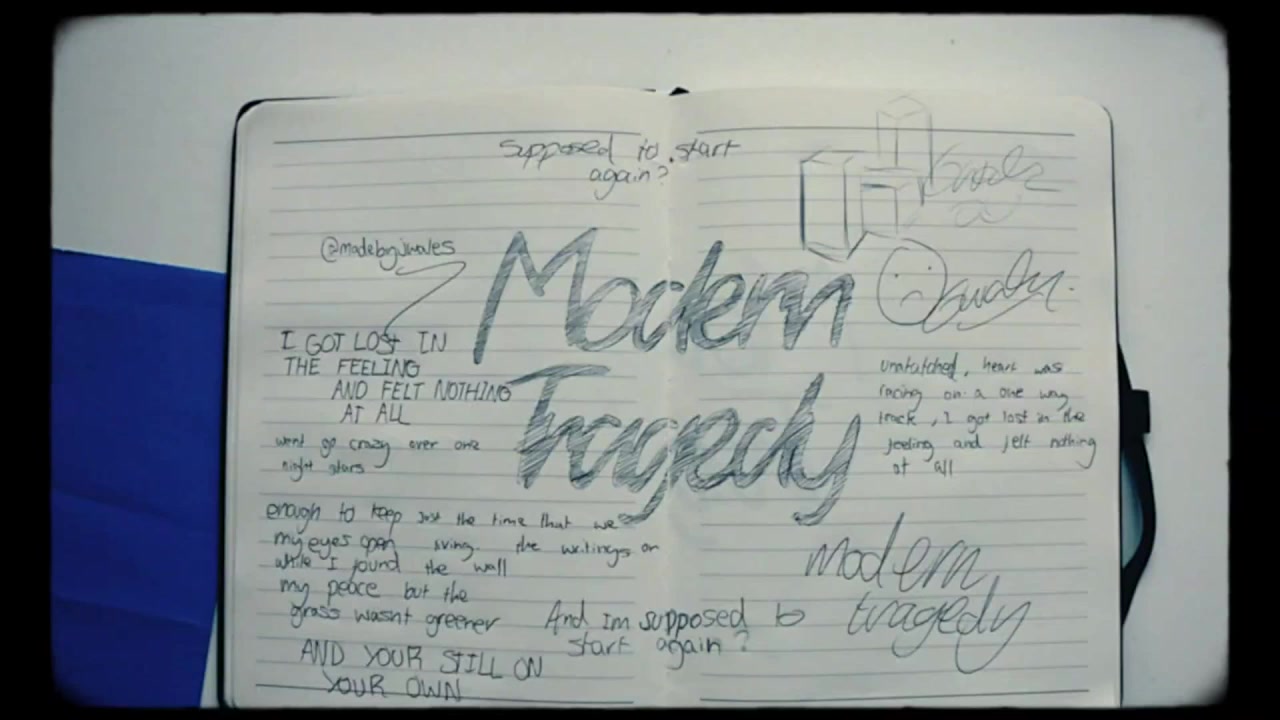 supposed to start
again?
@madebyjwales
Modern
Tragedy
I GOT LOST IN
THE FEELING
AND FELT NOTHING
AT ALL
went go crazy over one
night stars
enough to keep
my eyes open
while I found
my peace but the
grass wasnt greener
just the time that we
the writings on
the wall
AND YOUR STILL ON
YOUR OWN
And im supposed to
start again?
heart was
racing on a one way
track, I got lost in the
feeling and felt nothing
at all
modern
tragedy